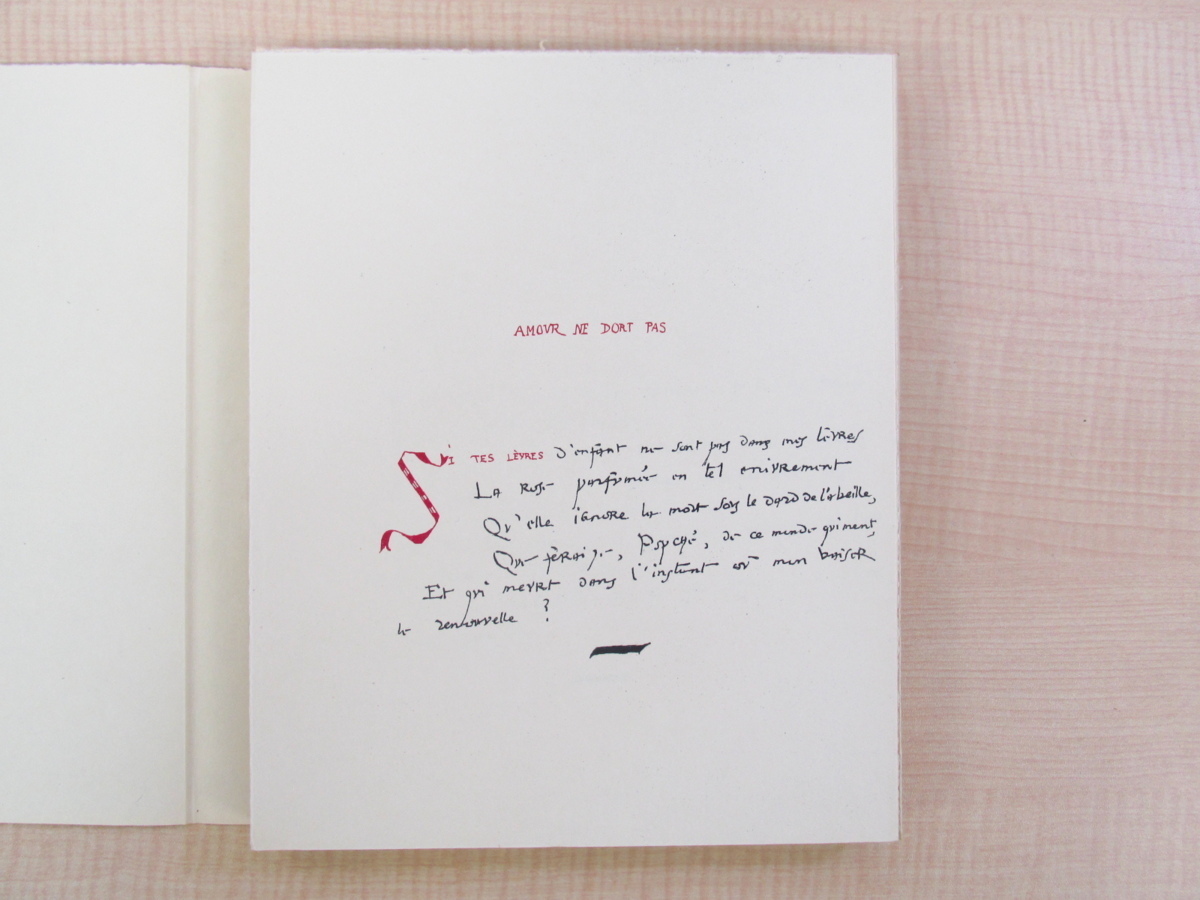 AMOVR NE DORT PAS
SI TES LÈVRES d'enfant ne sont pas dans mes lèvres
La rose parfumée en tel enivrement
Qu'elle ignore la mort sous le dard de l'abeille,
Que ferai-je, Psyché, de ce monde qui ment,
Et qui meurt dans l'instant où mon baiser
le renouvelle ?